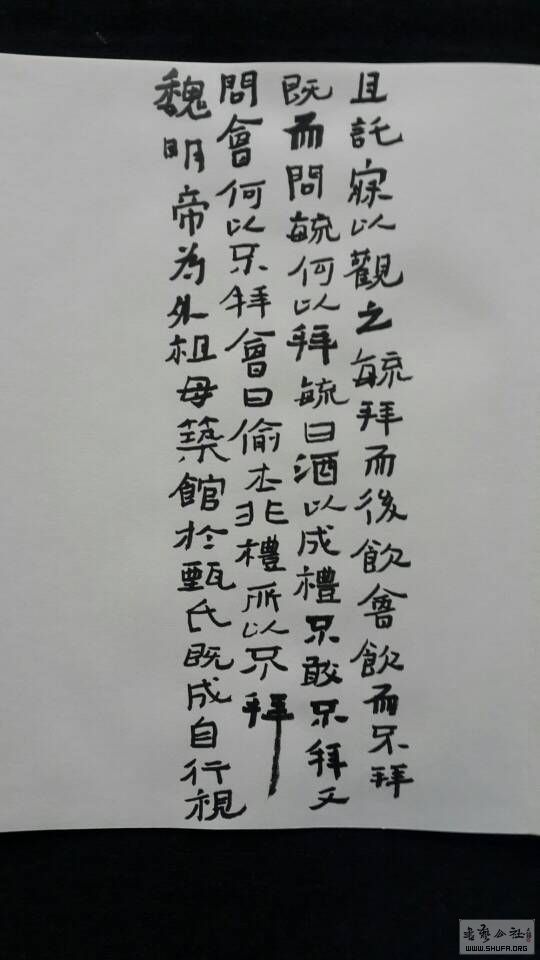 且託寐以觀之毓拜而後飲會飲而不拜
既而問毓何以拜毓曰酒以成禮不敢不拜又
問會何以不拜會曰偷本非禮所以不拜
魏明帝為外祖母築館於甄氏既成自行視
WWW.SHUFA.ORG